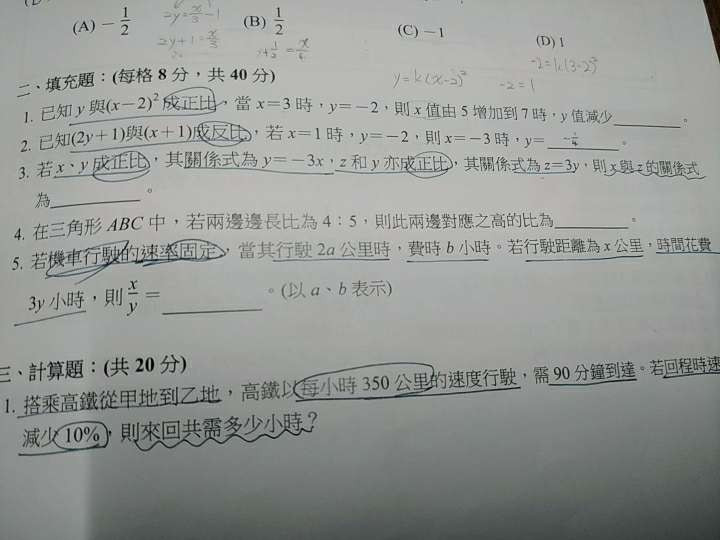 (A) −1/2 (B) 1/2 (C) −1 (D) 1
2y=x/3−1
2y+1=x/3
y+1/2=x/6
y=k(x-2)²
-2=k(3-2)²
-2=1
二、填充題：(每格 8 分，共 40 分)
1. 已知 y 與(x−2)² 成正比，當 x＝3 時，y＝−2，則 x 值由 5 增加到 7 時，y 值減少________。
2. 已知(2y＋1)與(x＋1)成反比，若 x＝1 時，y＝−2，則 x＝−3 時，y＝ -1/4 。
3. 若 x、y 成正比，其關係式為 y＝−3x，z 和 y 亦成正比，其關係式為 z＝3y，則 x 與 z 的關係式
為________。
4. 在三角形 ABC 中，若兩邊邊長比為 4：5，則此兩邊對應之高的比為________。
5. 若機車行駛的速率固定，當其行駛 2a 公里時，費時 b 小時。若行駛距離為 x 公里，時間花費
3y 小時，則 x/y ＝________。(以 a、b 表示)
三、計算題：(共 20 分)
1. 搭乘高鐵從甲地到乙地，高鐵以每小時 350 公里的速度行駛，需 90 分鐘到達。若回程時速
減少 10%，則來回共需多少小時？